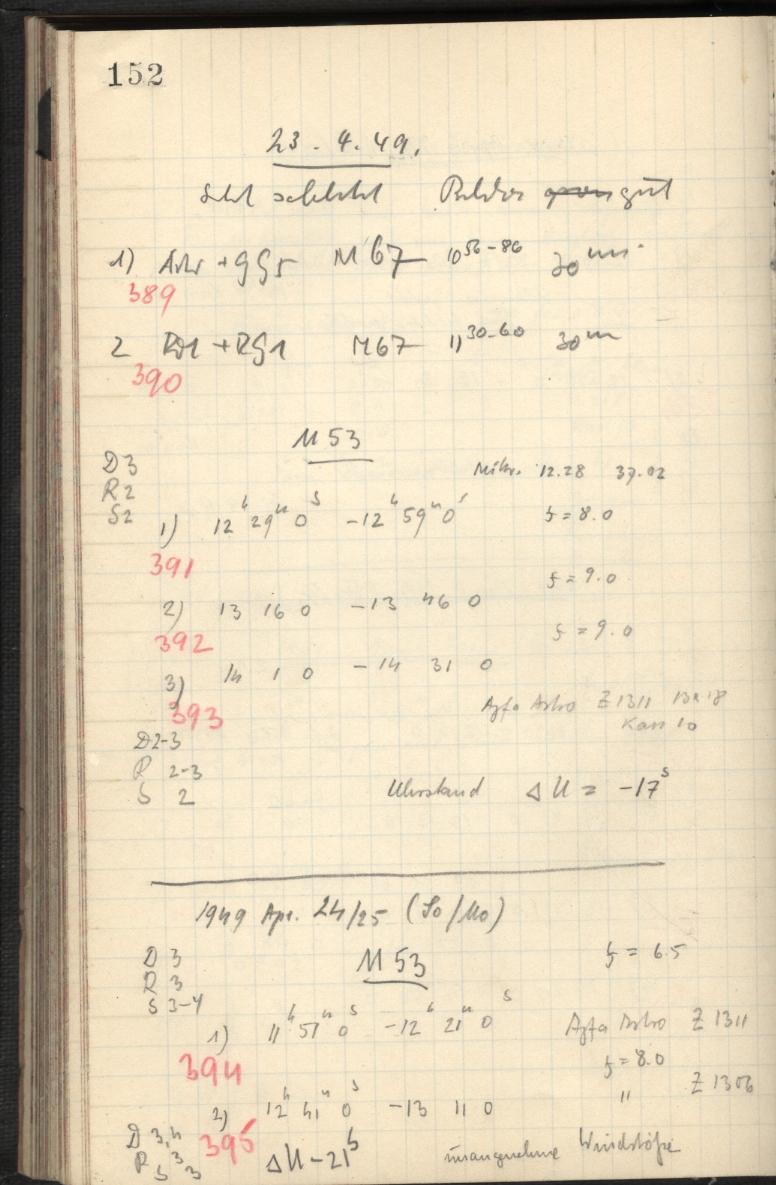 152
23. 4. 49.
Bilder gut
1) Astr + GG5 M 67 10 56-86 30 m
389
2 RD1 + RG1 M67 11 30-60 30 m
390
M 53
D3
Mikr. 12.28 37.02
R2
S2
1) 12 h 29 m 0 s -12 h 59 m 0 s f = 8.0
391
f = 9.0
2) 13 16 0 -13 46 0
392
f = 9.0
3) 14 1 0 -14 31 0
393
Agfa Astro Z 1311 13x18
Kass 10
D2-3
R 2-3
S 2
Uhrstand Δ U = -17 s
1949 Apr. 24/25 (So/Mo)
D 3 M 53 f = 6.5
R 3
S 3-4
1) 11 h 51 m 0 s -12 h 21 m 0 s Agfa Astro Z 1311
394
f = 8.0
2) 12 h 41 m 0 s -13 11 0 " Z 1306
395
D 3,4
R 3
S 3
Δ U - 21 s unangenehme Windstöße